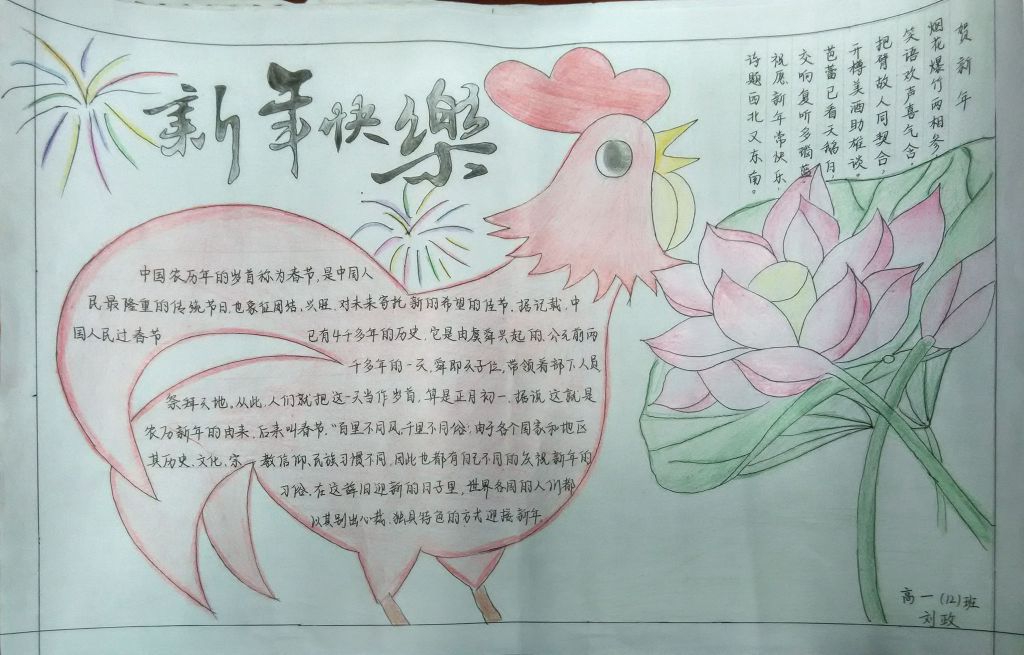 新年快樂
贺新年
烟花爆竹两相参，
笑语欢声喜气含，
把臂故人同契合，
开樽美酒助雄谈。
芭蕾已看天鹅日，
交响复听多瑙蓝，
祝愿新年常快乐，
诗题西北又东南。
中国农历年的岁首称为春节，是中国人
民最隆重的传统节日，也象征团结、兴旺，对未来寄托新的希望的佳节。据记载，中
国人民过春节已有4千多年的历史，它是由虞舜兴起的。公元前两
千多年的一天，舜即天子位，带领着部下人员
祭拜天地。从此，人们就把这一天当作岁首，算是正月初一。据说这就是
农历新年的由来，后来叫春节。“百里不同风，千里不同俗”，由于各个国家和地区
其历史、文化、宗教信仰、民族习惯不同，因此也都有自己不同的庆祝新年的
习俗。在这辞旧迎新的日子里，世界各国的人们都
以其别出心裁、独具特色的方式迎接新年。
高一(12)班
刘政